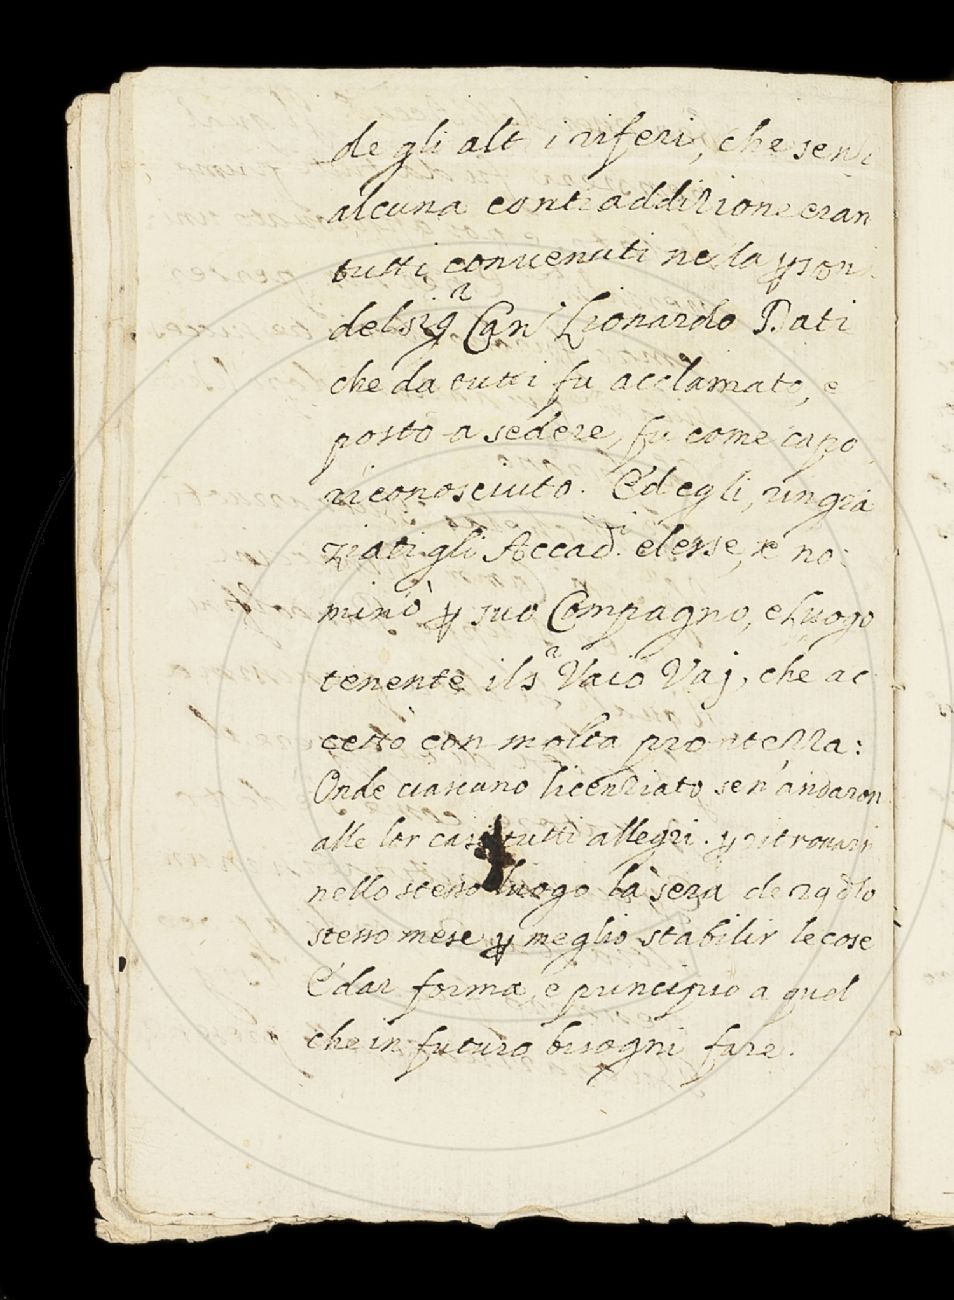 de gli alt i riferi, che senz
alcuna contraddizione eran
tutti conuenuti nella ꝑson
del sigr Can Lionardo Dati
che da tutti fu acclamato, e
posto a sedere, fu come capo
riconosciuto. Ed egli, ringra
ziati gli Accadi. elesse, e no:
minò ꝑ suo Compagno, e Luogo
tenente il sr Vaio Vaj, che ac
cettò con molta prontezza:
Onde ciascuno licenziato sen' andaron
alle lor case tutti allegri. ꝑ ritrouarsi
nello stesso luogo la sera de 29 dlo
stesso mese ꝑ meglio stabilir le cose
E dar forma, e principio a quel
che in futuro bisogni fare.